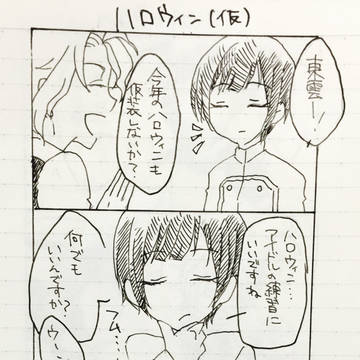 ハロウィン(仮)
東雲ー!
今年のハロウィンも
仮装しないか?
ハロウィン…
アイドルの練習に
いいですね
フム…
何でも
いいんですか?
ウーン